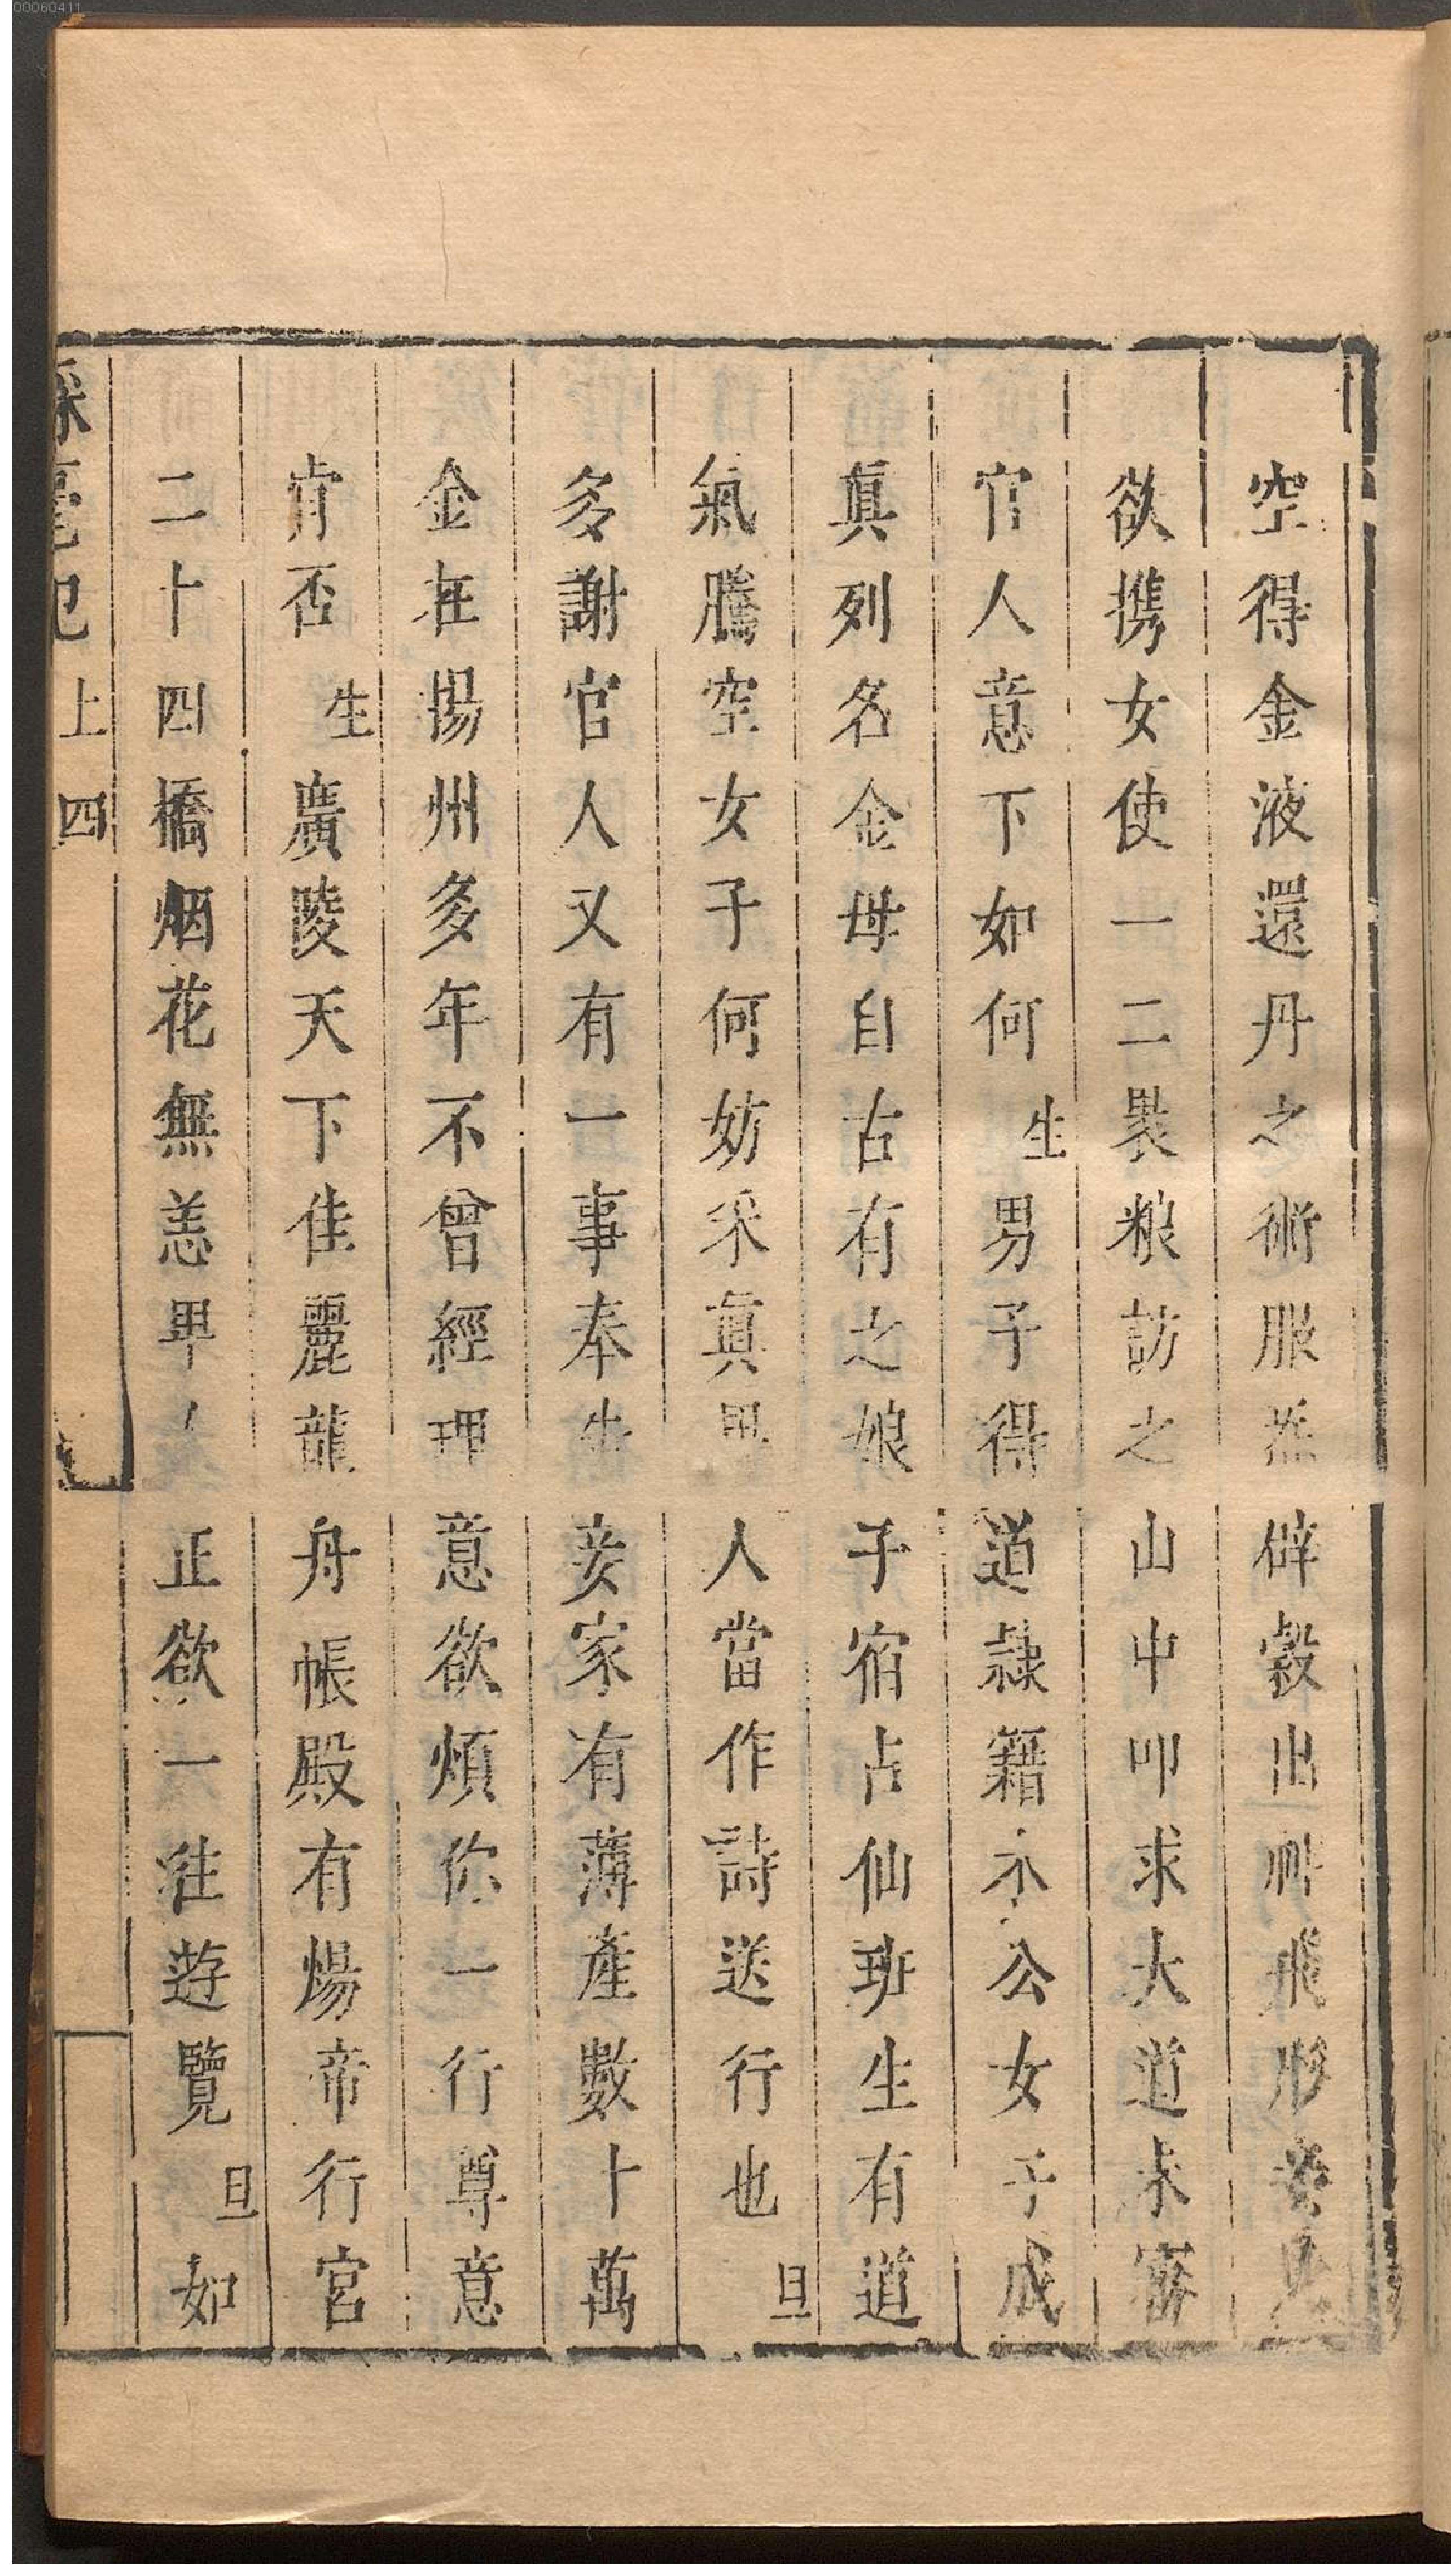 空得金液還丹之術服藥辟穀出神飛形妾
欲携女使一二裹粮訪之山中叩求大道未審
官人意下如何生男子得道隷籍木公女子成
眞列名金母自古有之娘子宿占仙班生有道
氣騰空女子何妨采眞男人當作詩送行也旦
多謝官人又有一事奉告妾家有薄產數十萬
金在揚州多年不曾經理意欲煩你一行尊意
肯否生廣陵天下佳麗龍舟帳殿有煬帝行宮
二十四橋烟花無恙男人正欲一往遊覽旦如
綵毫記上四
00060411